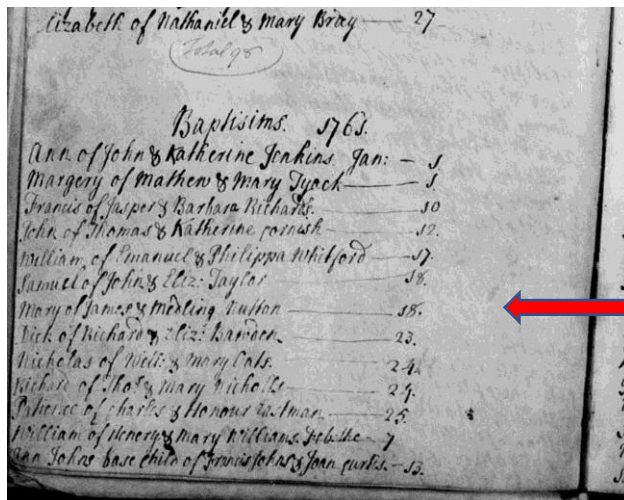 Elizabeth of Nathaniel & Mary Bray — 27
Total 98
Baptisims. 1761.
Ann of John & Katherine Jenkins. Jan: — 1.
Margery of Mathew & Mary Tyack — 1.
Francis of Jasper & Barbara Richards. — 10
John of Thomas & Katherine Cornish — 12.
William of Emanuel & Philippa Whitford — 17.
Samuel of John & Eliz: Taylor — 18.
Mary of James & Medling — 18.
Dick of Richard & Eliz: Bawden — 23.
Nicholas of Will: & Mary — 24.
Richard of Thos & Mary Nicholls — 24.
Patience of Charles & Honour Eastman — 25.
William of Henery & Mary Williams. Feb: the — 7
Ann Johns base child of Francis Johns & Joan Curtis. — 13.